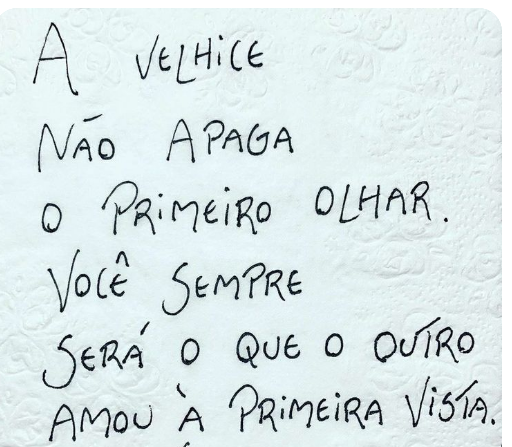 A VELHICE
NÃO APAGA
O PRIMEIRO OLHAR.
VOCÊ SEMPRE
SERÁ O QUE O OUTRO
AMOU À PRIMEIRA VISTA.